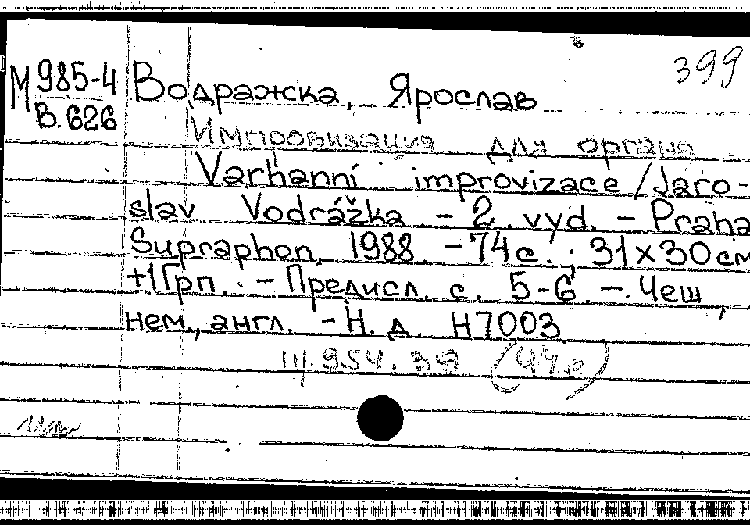 399
М 985-4
В.626
Водражска, Ярослав
Импровизация для органа
Varhanní improvizace / Jaro-
slav Vodrážka - 2. vyd. - Praha
Supraphon, 1988. - 74 с. ; 31х30 см
+1 Грп. - Предисл. с. 5-6. - Чеш.,
нем., англ. - Н. д. Н7003